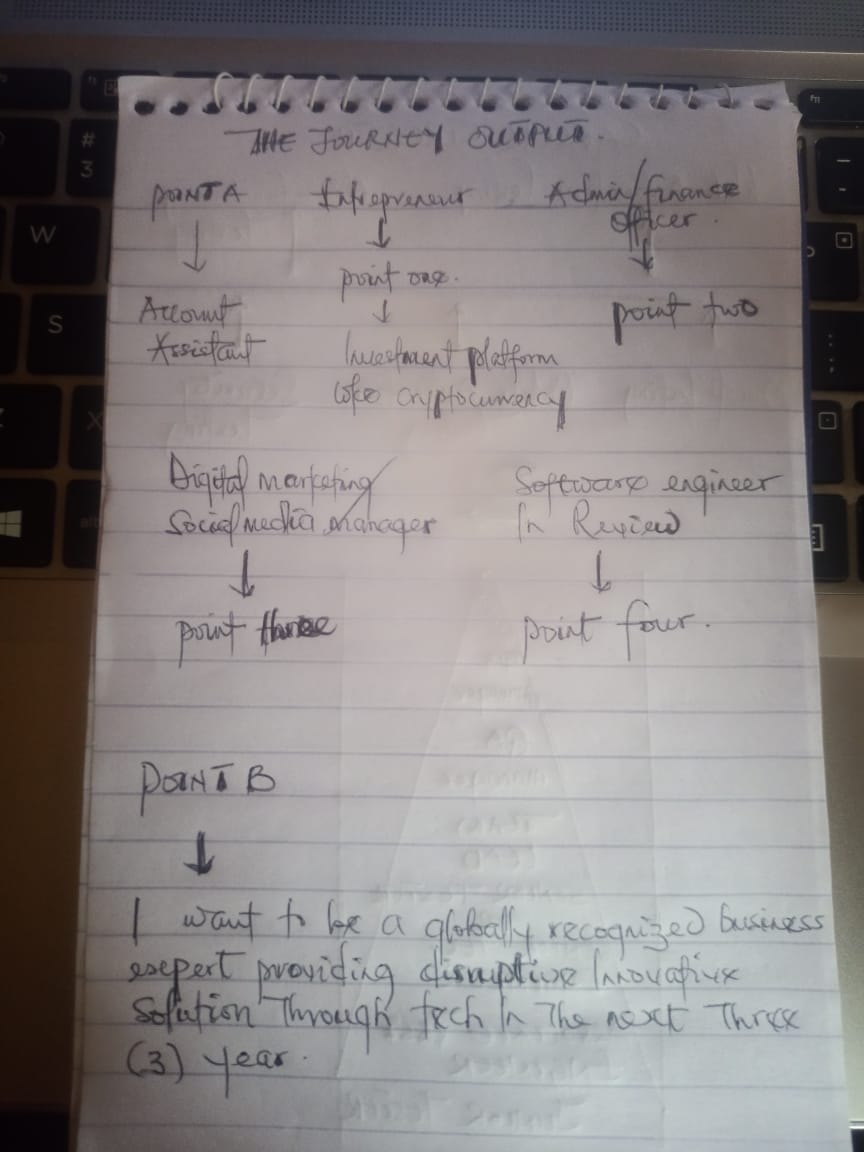 THE JOURNEY OUTPUT.
POINT A
↓
Account
Assistant
Entrepreneur
↓
point one.
↓
Investment platform
like cryptocurrency
Admin/finance
officer.
↓
point two
Digital marketing/
Social media manager
↓
point three
Software engineer
In Review
↓
point four.
POINT B
↓
I want to be a globally recognized business
expert providing disruptive Innovative
Solution Through tech In The next Three
(3) year.
#
3
W
S
X
alt